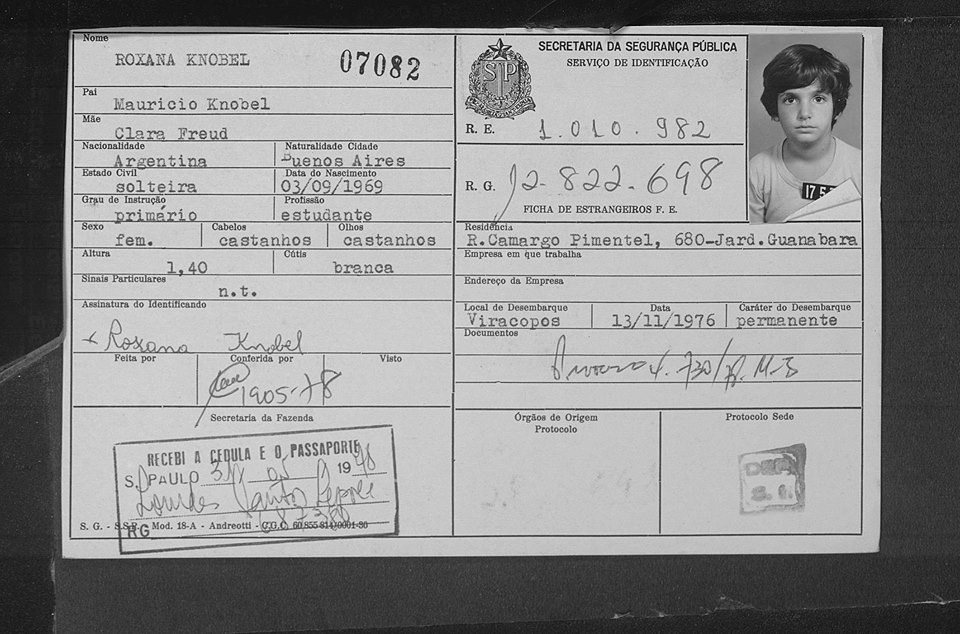 Nome
ROXANA KNOBEL 07082
Pai
Mauricio Knobel
Mãe
Clara Freud
Nacionalidade Naturalidade Cidade
Argentina Buenos Aires
Estado Civil Data do Nascimento
solteira 03/09/1969
Grau de Instrução Profissão
primário estudante
Sexo Cabelos Olhos
fem. castanhos castanhos
Altura Cútis
1,40 branca
Sinais Particulares
n.t.
Assinatura do Identificando
Roxana Knobel
Feita por Conferida por Visto
1905-78
Secretaria da Fazenda
RECEBI A CEDULA E O PASSAPORTE
S. PAULO 05 1978
Lourdes Santos
RG
S. G. - S.S.P. Mod. 18-A - Andreotti - C.G.C. 60 855 814/0001-36
SP
SECRETARIA DA SEGURANÇA PÚBLICA
SERVIÇO DE IDENTIFICAÇÃO
R. E. 1.010.982
R. G. 12-822-698
FICHA DE ESTRANGEIROS F. E.
17 5
Residência
R.Camargo Pimentel, 680-Jard.Guanabara
Empresa em que trabalha
Endereço da Empresa
Local de Desembarque Data Caráter do Desembarque
Viracopos 13/11/1976 permanente
Documentos
4.730/78
Órgãos de Origem
Protocolo
Protocolo Sede